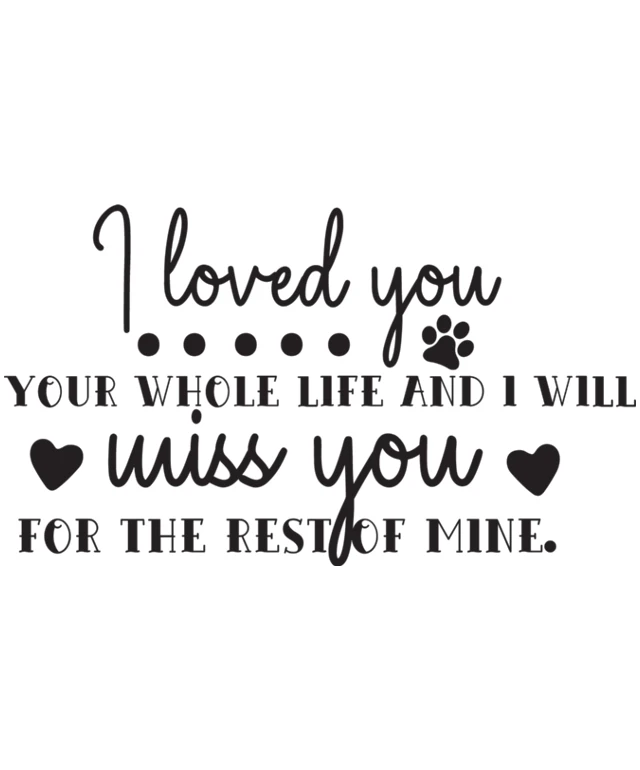 I loved you
YOUR WHOLE LIFE AND I WILL
miss you
FOR THE REST OF MINE.